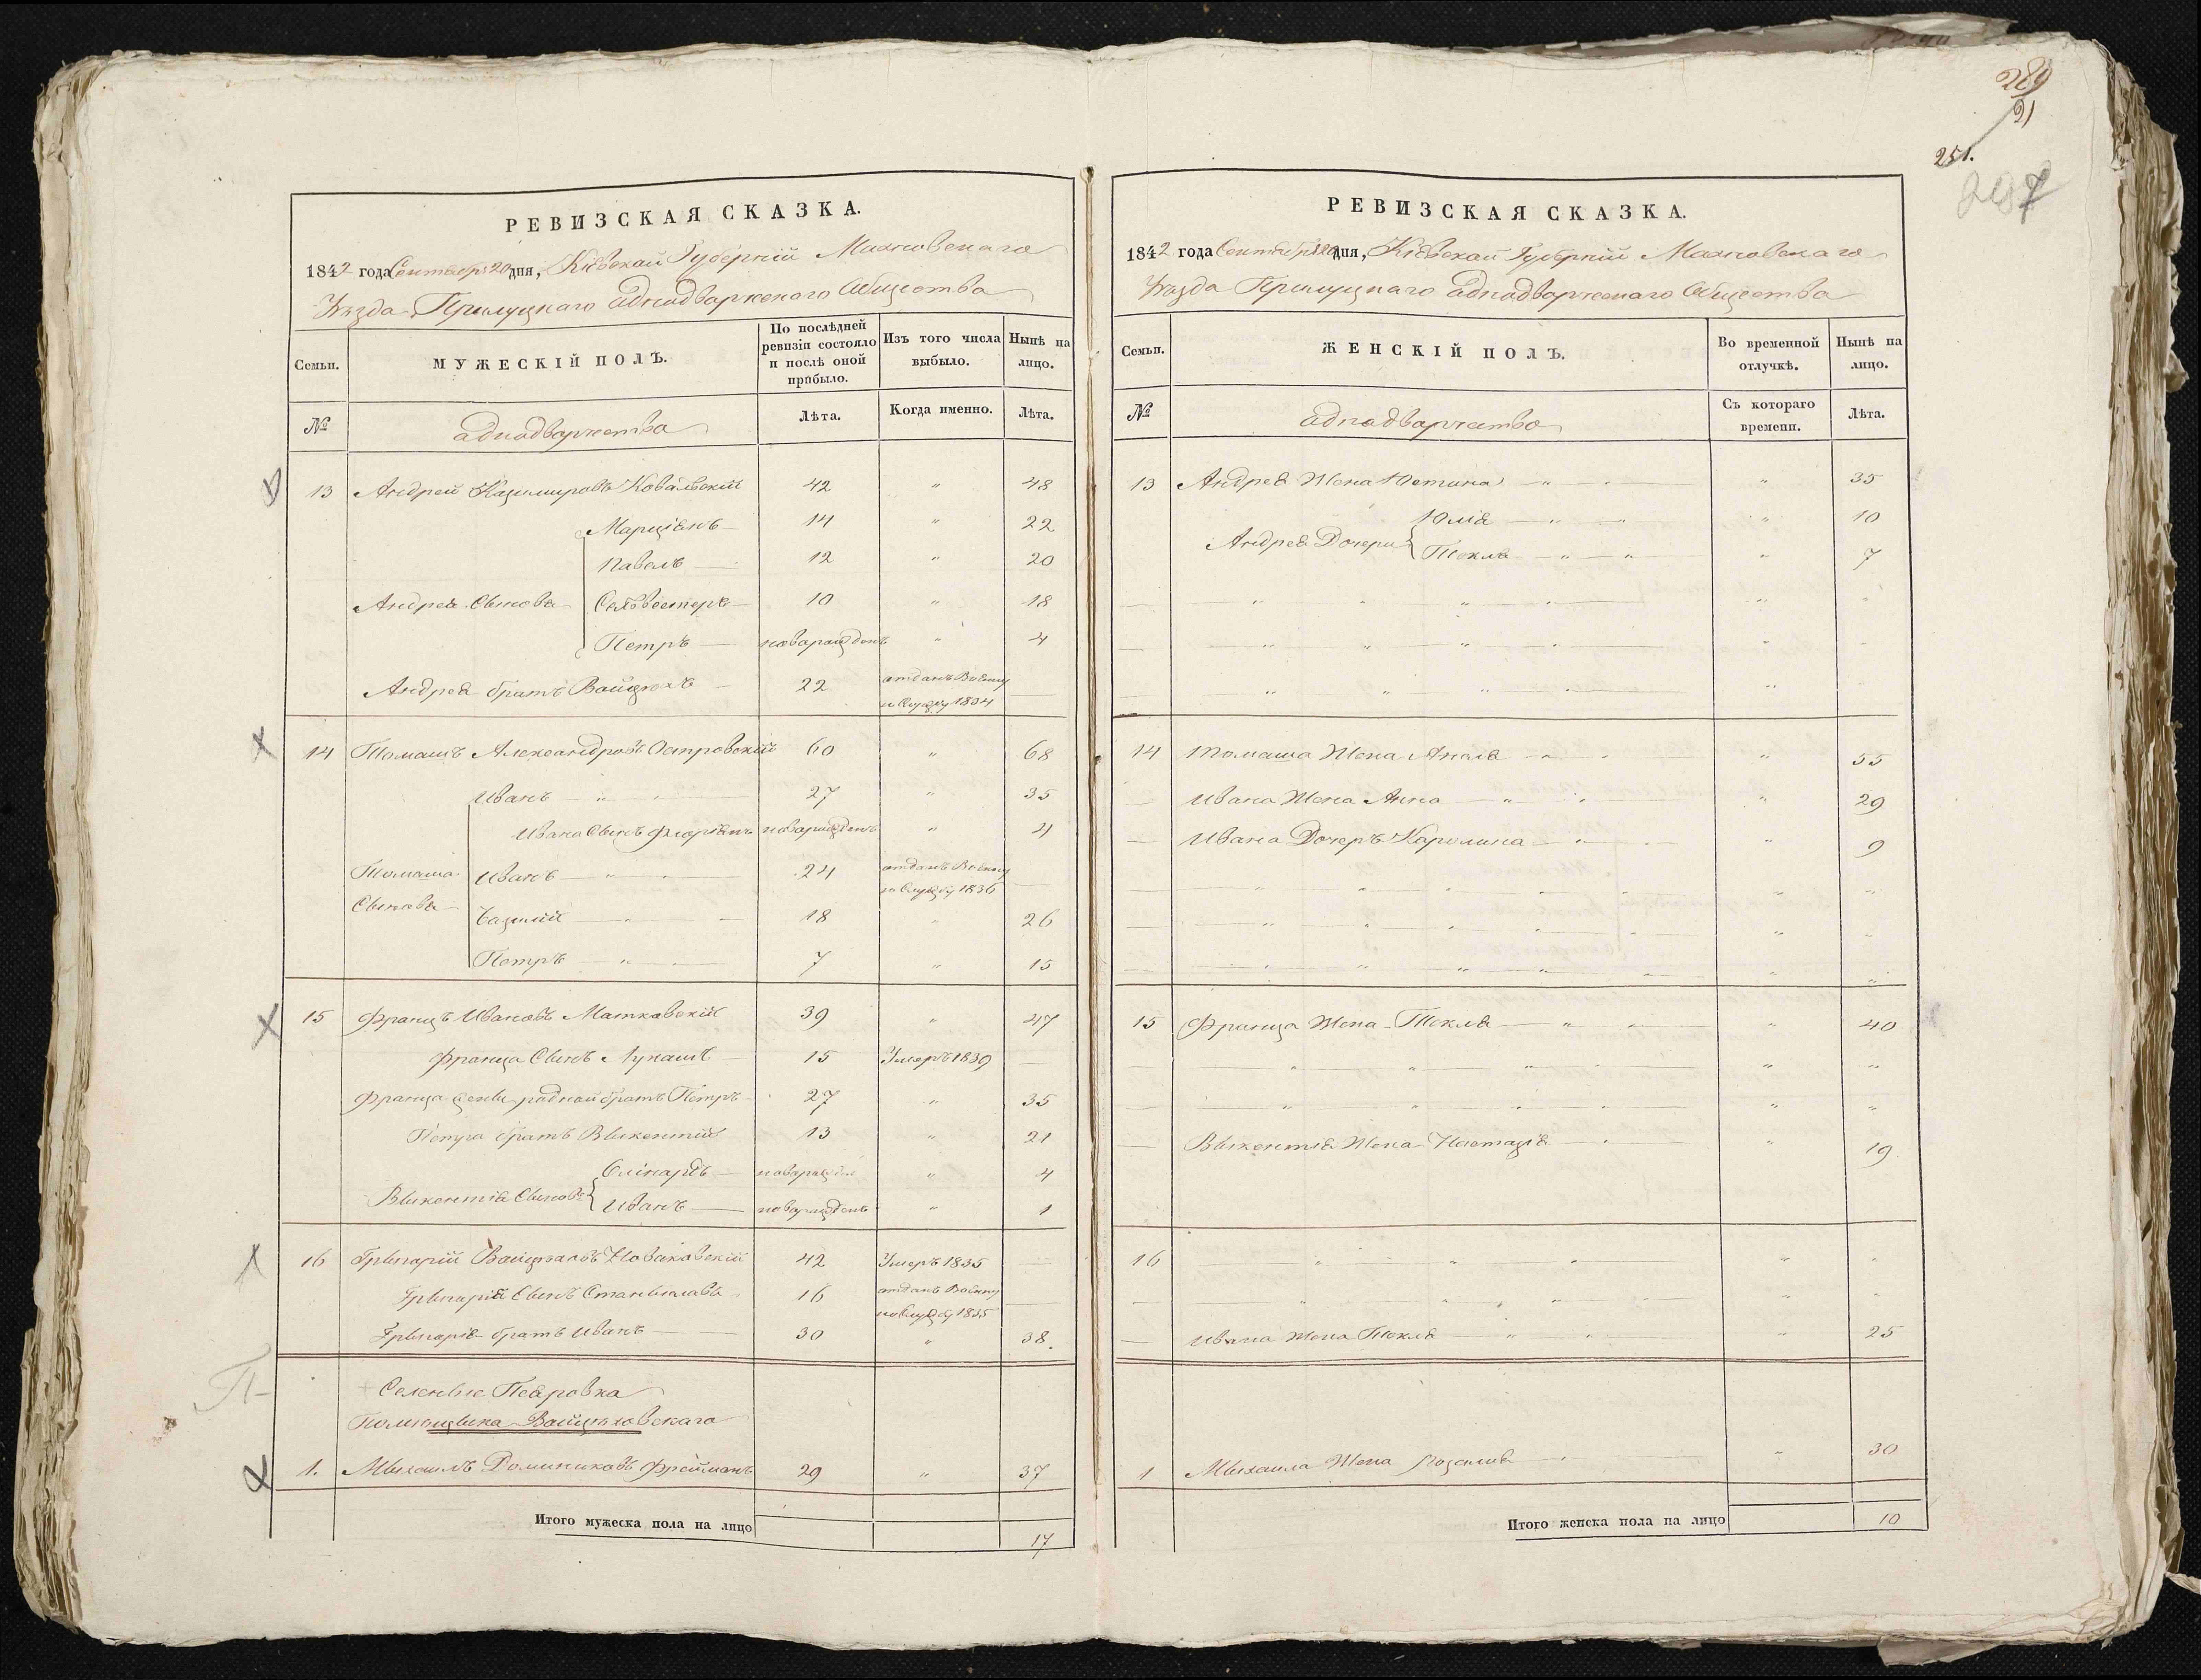 289
21
251.
297
РЕВИЗСКАЯ СКАЗКА.
1842 года Сентября 20 дня, Кіевской Губерніи Махновскаго
Уѣзда Прилуцкаго аднодварческого Общества
Семьи.
МУЖЕСКІЙ ПОЛЪ.
По послѣдней ревизіи состояло и послѣ оной прибыло.
Изъ того числа выбыло.
Нынѣ на лицо.
№
аднодварчества
Лѣта.
Когда именно.
Лѣта.
13 Андрей Казимировъ Ковальскій 42 " 48
Марціанъ 14 " 22
Павелъ 12 " 20
Андрея Сынова Селвестеръ 10 " 18
Петръ новаражденъ " 4
Андрея братъ Войцехъ 22 отданъ Воěнну
ю Службу 1834
14 Томашъ Александровъ Островскій 60 " 68
Иванъ 27 " 35
Ивана Сынъ Флоріанъ новаражденъ " 4
Томаша Иванъ 24 отданъ Воěнну
ю Службу 1836
Сынова Базилій 18 " 26
Петръ 7 " 15
15 Францъ Ивановъ Матковскій 39 " 47
Франца Сынъ Лукашъ 15 Умеръ 1839
Франца радной братъ Петръ 27 " 35
Петра братъ Выкентій 13 " 21
новаражден " 4
Выкентія Сынове Иванъ новаражденъ " 1
16 Грыгорій Войцеховъ Новаковскій 42 Умеръ 1835
Грыгорія Сынъ Станыславъ 16 отданъ Воěнну
ю Службу 1835
Грыгорія братъ Иванъ 30 " 38.
П-
Селеные Пеаровка
Помѣщыка Войцеховскаго
1. Мыхаилъ Доминиковъ Фрейманъ 29 " 37
Итого мужеска пола на лицо
17
РЕВИЗСКАЯ СКАЗКА.
1842 года Сентября 20 дня, Кіевской Губерніи Махновскаго
Уѣзда Прилуцкаго аднодварческаго Общества
Семьи.
ЖЕНСКІЙ ПОЛЪ.
Во временной отлучкѣ.
Нынѣ на лицо.
№
аднодварчества
Съ котораго времени.
Лѣта.
13 Андрея Жена Юстина " 35
Юлія " 10
Андрея Дочери Текля " 7
14 Томаша Жена Анеля " 55
Ивана Жена Анна " 29
Ивана Дочеръ Каролина " 9
15 Франца Жена Текля " 40
Выкентія Жена Настазія " 19
16
Ивана Жена Текля " 25
1 Мыхаила Жена Розалия " 30
Итого женска пола на лицо
10